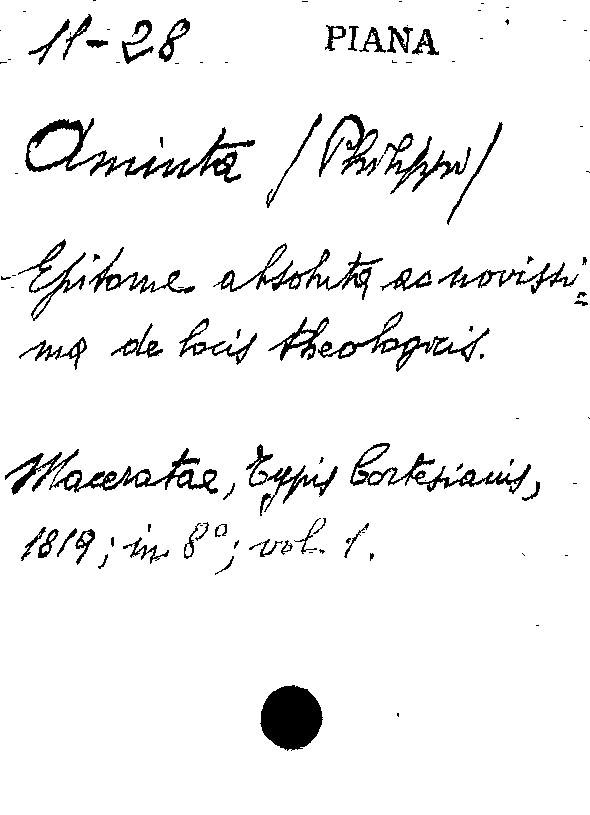 11-28 PIANA
Aminta (Philippi)
Epitome absoluta ac novissi=
ma de locis theologicis.
Maceratae, Typis Cortesianis,
1819; in 8°; vol. 1.